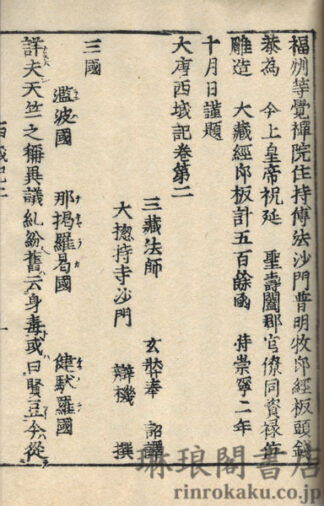 福州等覺禪院住持傳法沙門普明收印經板頭錢
恭為 今上皇帝祝延 聖壽闔郡官僚同資禄位
雕造 大藏經印板計五百餘函 時崇寧二年
十月日謹題
大唐西域記卷第二
三藏法師 玄奘奉 詔譯
大揔持寺沙門 辯機 撰
三國
濫波國 那揭羅曷國 健馱羅國
詳夫天竺之稱異議糺紛舊云身毒或曰賢豆今從
琳琅閣書店
rinrokaku.co.jp